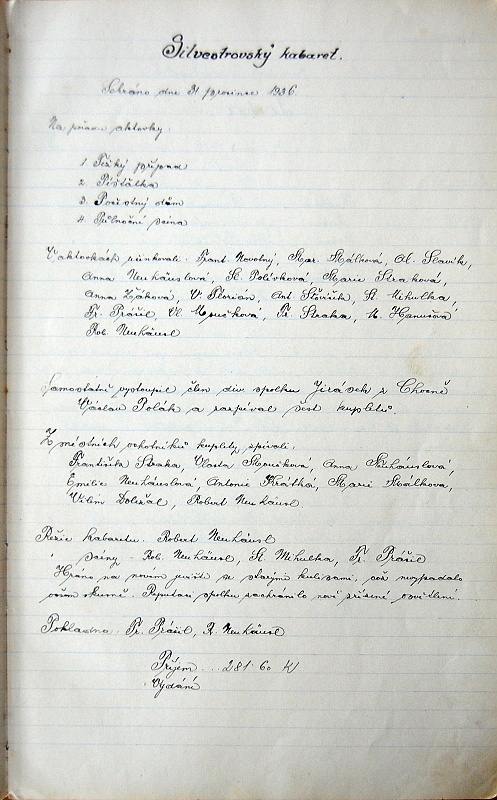 Silvestrovský kabaret.
Sehráno dne 31 prosince 1936.
Na pořadu aktovky:
1. Těžký případ
2. Píšťalka
3. Počestný dům
4. Půlnoční scéna
V aktovkách účinkovali: Frant. Novotný, Mar. Málková, Al. Slavík,
Anna Neuhäuslová, St. Polívková, Marie Straková,
Anna Žáková, V. Florian, Ant. St. Mihulka,
Fr. Prášil, Vl. Fr. Straka, M. Hanušová
Rob. Neuhäusl
Samostatně vystoupil člen div. spolku Jirásek z Chocně
Václav Polák a zazpíval šest kupletů.
Z místních ochotníků kuplety zpívali:
Františka Straka, Vlasta Anna
Emilie Neuhäuslová, Antonie Krátká, Marie Málková,
Vilém Doležal, Robert Neuhäusl.
Režie kabaretu: Robert Neuhäusl
" scény - Rob. Neuhäusl, St. Mihulka, Fr. Prášil
Hráno na novém jevišti se starými kulisami, což nevypadalo
ovšem skvěle. Reputaci spolku zachránilo nově zřízené osvětlení.
Pokladna: Fr. Prášil, R. Neuhäusl
Příjem ... 281.60 K
Vydání